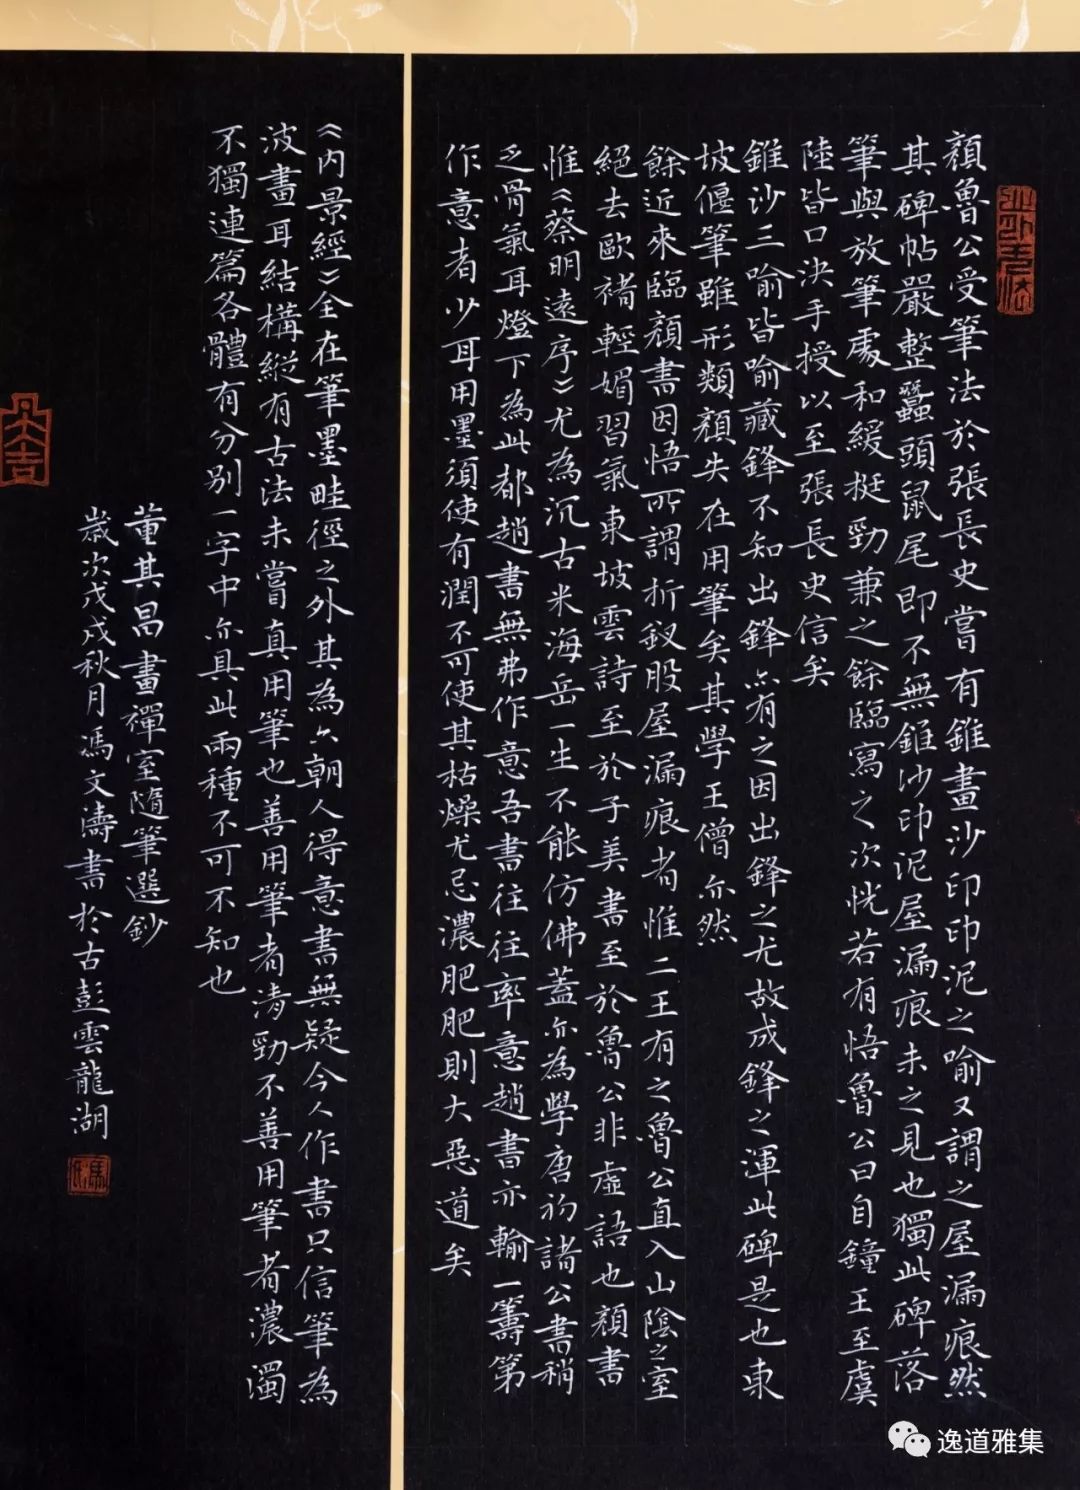 顏魯公受筆法於張長史嘗有錐畫沙印印泥之喻又謂之屋漏痕然
其碑帖嚴整蠶頭鼠尾即不無錐沙印泥屋漏痕未之見也獨此碑落
筆與放筆處和緩挺勁兼之餘臨寫之次恍若有悟魯公曰自鐘王至虞
陸皆口決手授以至張長史信矣
錐沙三喻皆喻藏鋒不知出鋒亦有之因出鋒之尤故成鋒之渾此碑是也東
坡偃筆雖形類顏失在用筆矣其學王僧亦然
餘近來臨顏書因悟所謂折釵股屋漏痕者惟二王有之魯公直入山陰之室
絕去歐褚輕媚習氣東坡雲詩至於子美書至於魯公非虛語也顏書
惟《蔡明遠序》尤為沉古米海岳一生不能仿佛蓋亦為學唐初諸公書稍
乏骨氣耳燈下為此都趙書無弗作意吾書往往率意趙書亦輸一籌第
作意者少耳用墨須使有潤不可使其枯燥尤忌濃肥肥則大惡道矣
《內景經》全在筆墨畦徑之外其為六朝人得意書無疑今人作書只信筆為
波畫耳結構縱有古法未嘗真用筆也善用筆者清勁不善用筆者濃濁
不獨連篇各體有分別一字中亦具此兩種不可不知也
董其昌畫禪室隨筆選鈔
歲次戊戌秋月馮文濤書於古彭雲龍湖
大吉
逸道雅集